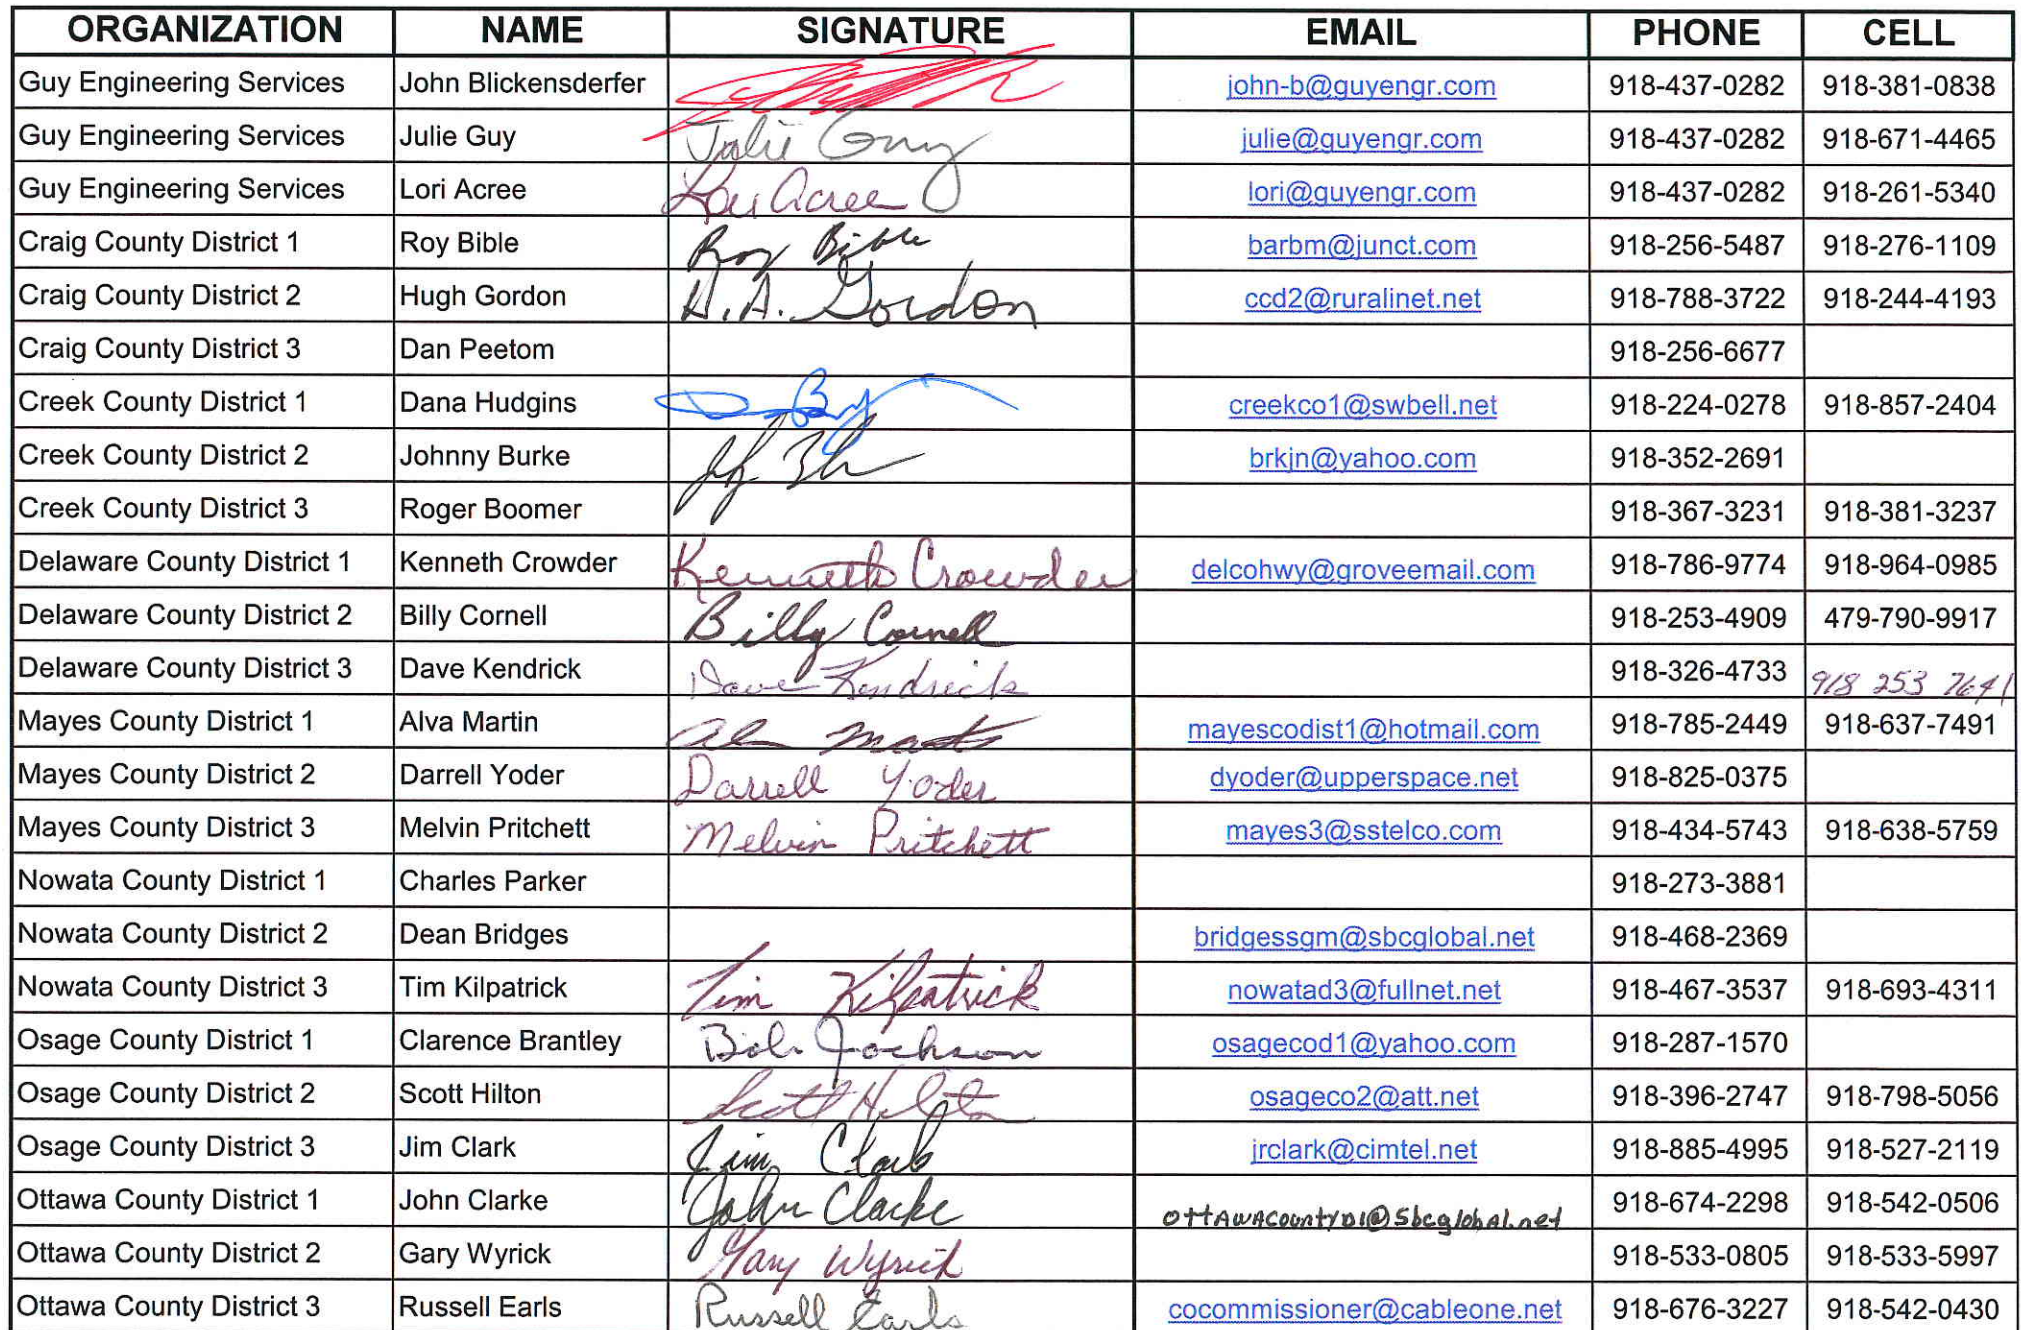 ORGANIZATION NAME SIGNATURE EMAIL PHONE CELL
Guy Engineering Services John Blickensderfer john-b@guyengr.com 918-437-0282 918-381-0838
Guy Engineering Services Julie Guy Julie Guy julie@guyengr.com 918-437-0282 918-671-4465
Guy Engineering Services Lori Acree Lori Acree lori@guyengr.com 918-437-0282 918-261-5340
Craig County District 1 Roy Bible Roy Bible barbm@junct.com 918-256-5487 918-276-1109
Craig County District 2 Hugh Gordon H.A. Gordon ccd2@ruralinet.net 918-788-3722 918-244-4193
Craig County District 3 Dan Peetom 918-256-6677
Creek County District 1 Dana Hudgins creekco1@swbell.net 918-224-0278 918-857-2404
Creek County District 2 Johnny Burke brkjn@yahoo.com 918-352-2691
Creek County District 3 Roger Boomer 918-367-3231 918-381-3237
Delaware County District 1 Kenneth Crowder Kenneth Crowder delcohwy@groveemail.com 918-786-9774 918-964-0985
Delaware County District 2 Billy Cornell Billy Cornell 918-253-4909 479-790-9917
Delaware County District 3 Dave Kendrick Dave Kendrick 918-326-4733 918 253 7641
Mayes County District 1 Alva Martin mayescodist1@hotmail.com 918-785-2449 918-637-7491
Mayes County District 2 Darrell Yoder Darrell Yoder dyoder@upperspace.net 918-825-0375
Mayes County District 3 Melvin Pritchett Melvin Pritchett mayes3@sstelco.com 918-434-5743 918-638-5759
Nowata County District 1 Charles Parker 918-273-3881
Nowata County District 2 Dean Bridges bridgessgm@sbcglobal.net 918-468-2369
Nowata County District 3 Tim Kilpatrick Tim Kilpatrick nowatad3@fullnet.net 918-467-3537 918-693-4311
Osage County District 1 Clarence Brantley Bob Jackson osagecod1@yahoo.com 918-287-1570
Osage County District 2 Scott Hilton Scott Hilton osageco2@att.net 918-396-2747 918-798-5056
Osage County District 3 Jim Clark Jim Clark jrclark@cimtel.net 918-885-4995 918-527-2119
Ottawa County District 1 John Clarke John Clarke OttAwACountyD1@SbcglobAl.net 918-674-2298 918-542-0506
Ottawa County District 2 Gary Wyrick Gary Wyrick 918-533-0805 918-533-5997
Ottawa County District 3 Russell Earls Russell Earls cocommissioner@cableone.net 918-676-3227 918-542-0430